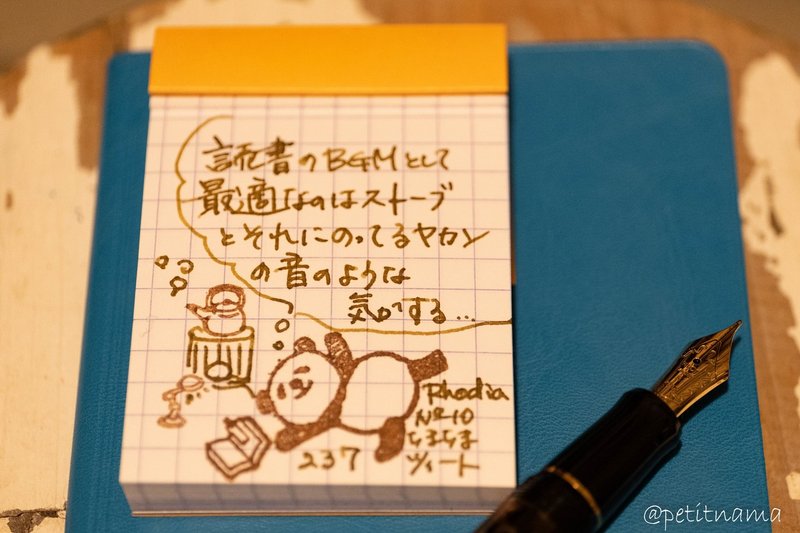 読書のBGMとして
最適なのはストーブ
とそれにのってるヤカン
の音のような
気がする…
Rhodia
No10
ちまちま
ツイート
237
@petitnama